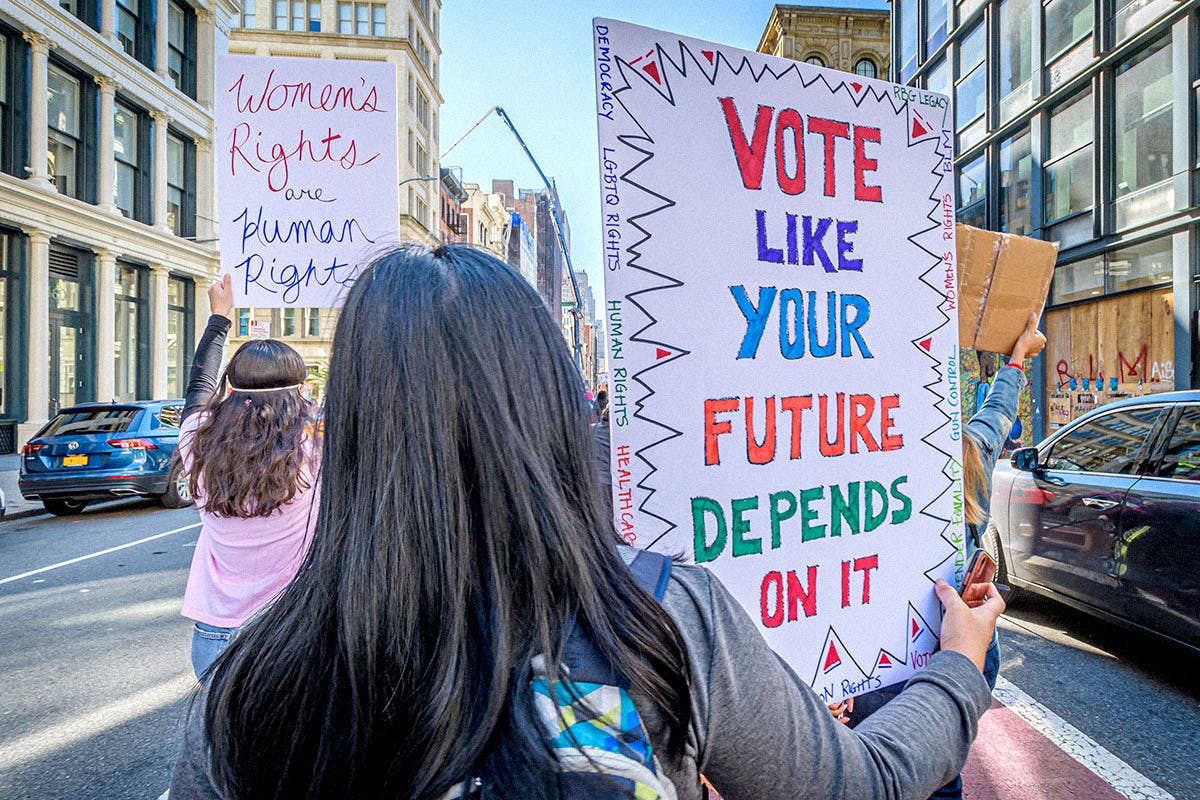 Women's
Rights
are
Human
Rights
DEMOCRACY
LGBTQ RIGHTS
HUMAN RIGHTS
HEALTHCAR
VOTE
LIKE
YOUR
FUTURE
DEPENDS
ON IT
RBG LEGACY
BLM
WOMEN'S RIGHTS
GUN CONTROL
ENDER EQUALITY
VOT
ON RIGHTS
BLM